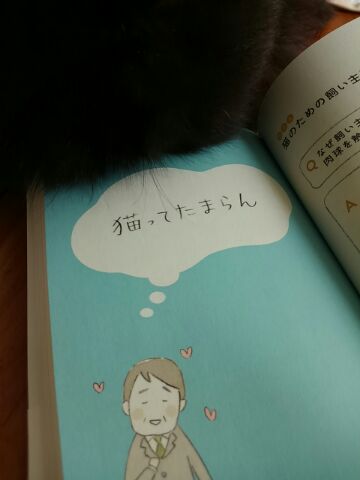 猫ってたまらん
猫のための飼い主
Q なぜ飼い主
肉球を触
A